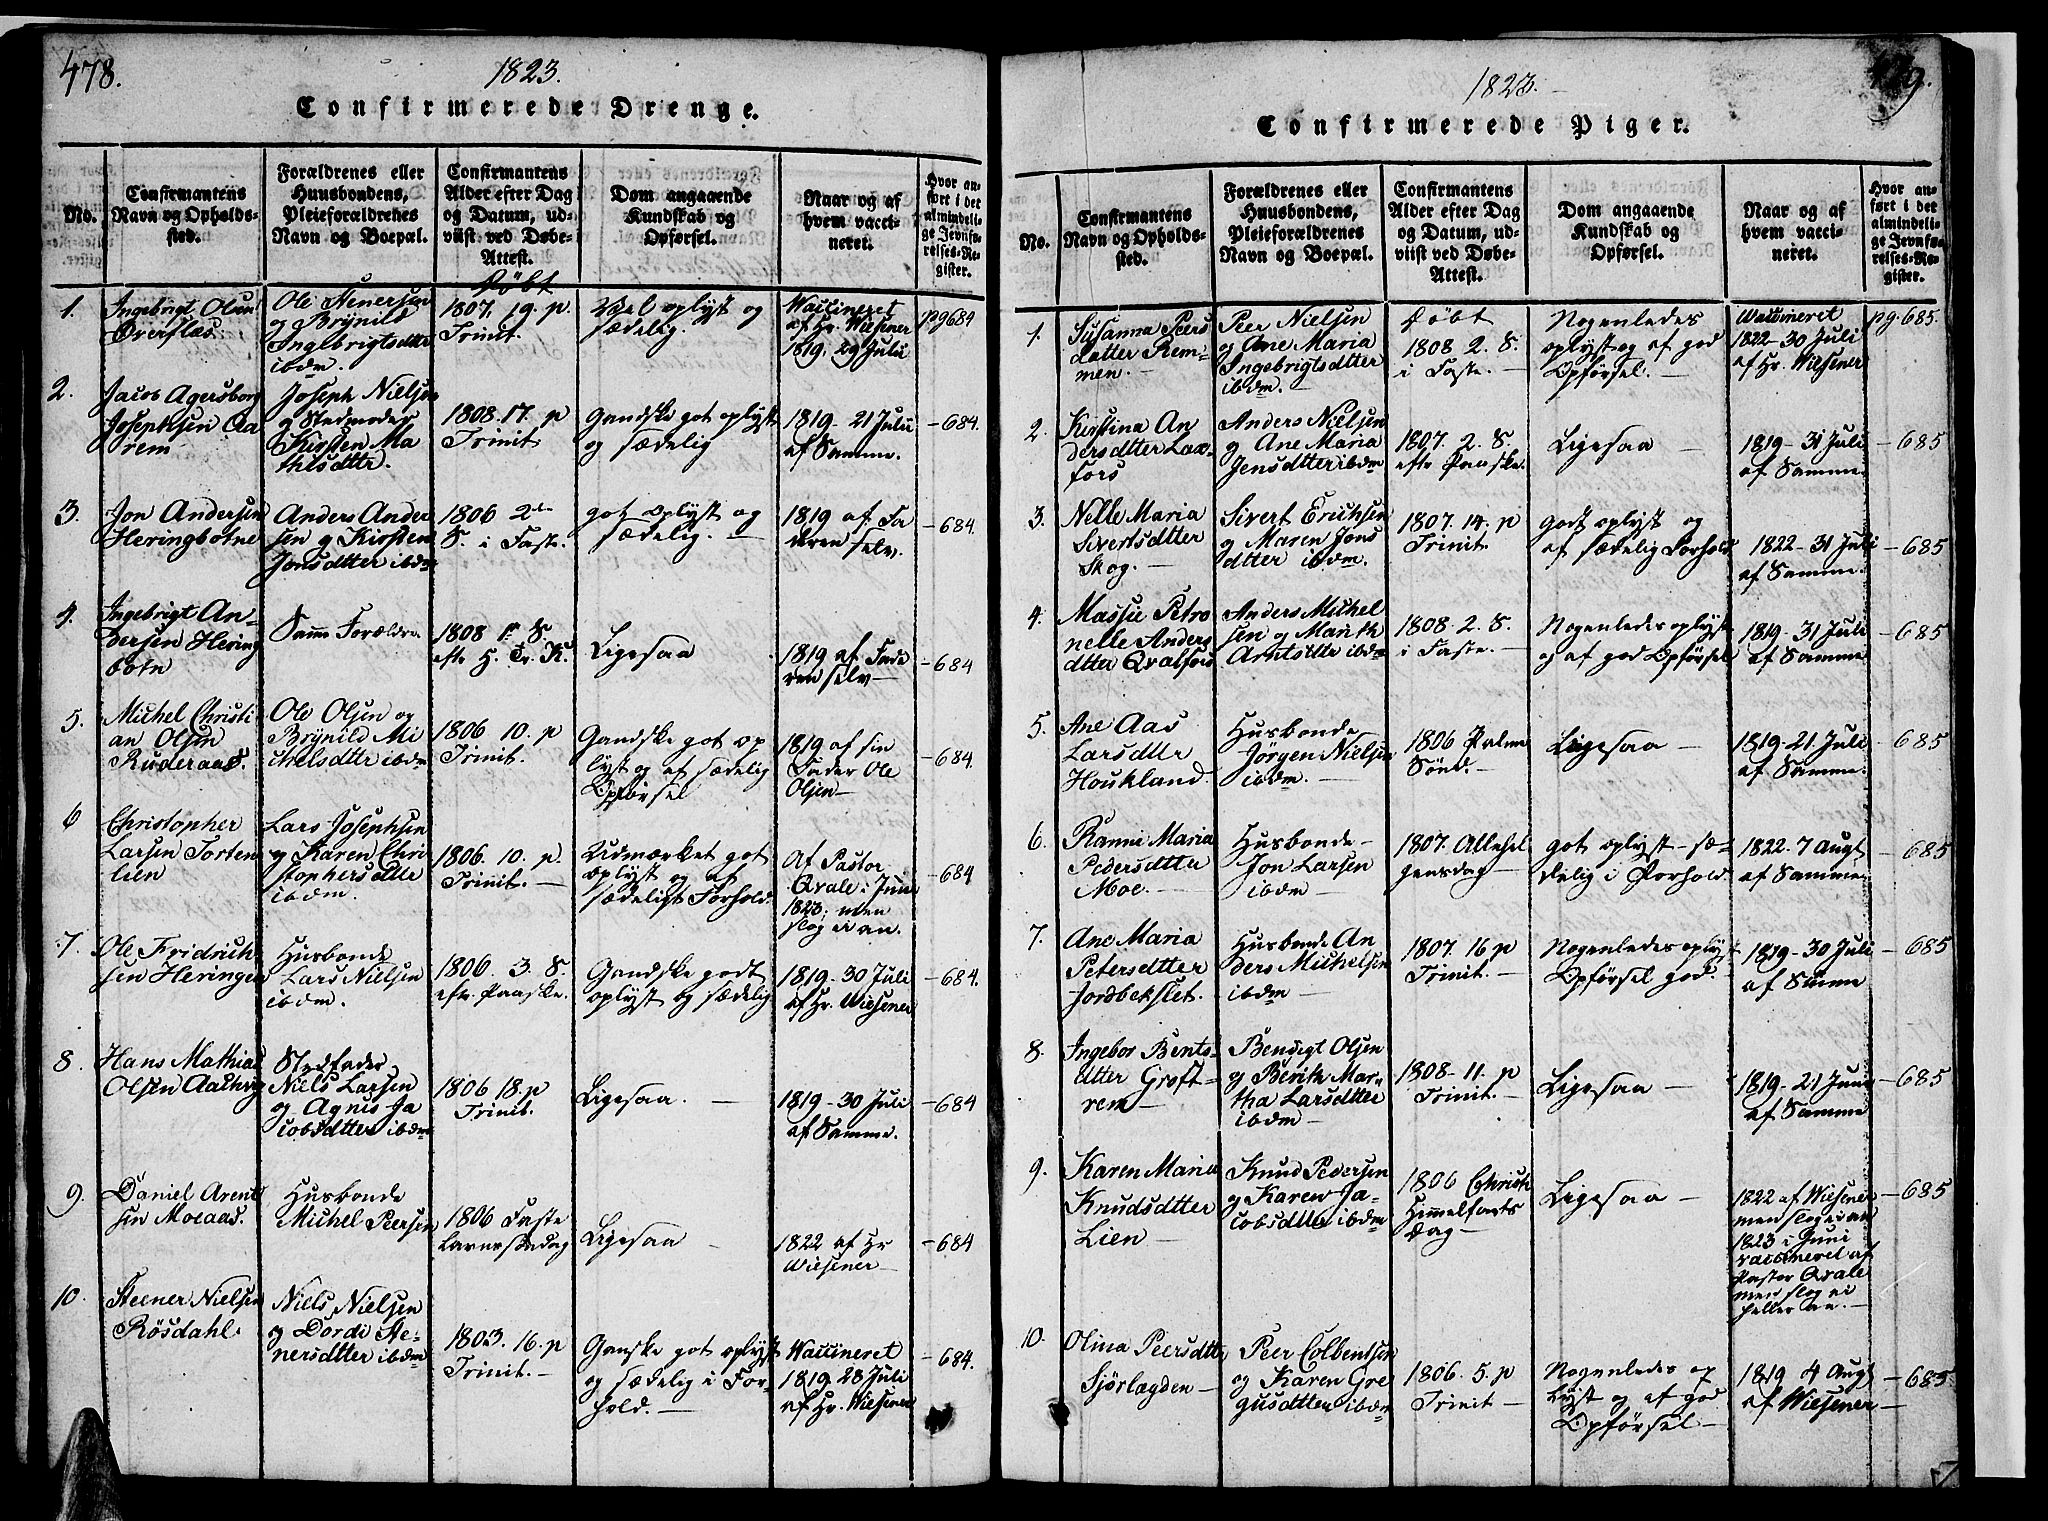 478.
1823.
Confirmerede Drenge.
No.
Confirmantens
Navn og Opholds-
sted.
Forældrenes eller
Huusbondens,
Pleieforældrenes
Navn og Boepæl.
Confirmantens
Alder efter Dag
og Datum, ud-
viist ved Døbe-
Attest.
Dom angaaende
Kundskab og
Opførsel.
Naar og af
hvem vacci-
neret.
Hvor an-
ført i det
almindeli-
ge Jevnfø-
relses-Re-
gister.
Døbt
1.
Ingebrigt Olsen
Ole Stenersen
og Brynild
Ingebrigtsdtter
ibdm.
1807. 19. p.
Trinit.
Vel oplyst og
sædelig.
Vaccineret
af Hr. Wiesener
1819. 29 Julii
pg 684
2.
Jacob Agersborg
Josephsen Aa
rem
Joseph Nielsen
og Stedmoder
Kirsten Ma
thisdtter.
1808. 17. p
Trinit.
Gandske got oplyst
og sædelig
1819 - 21 Julii
af Samme.
- 684.
3.
Jon Andersen
Heringbotne
Anders Ander
sen og Kirsten
Jonsdtter ibdm
1806 2den
S. i Faste.
got oplyst og
sædelig.
1819 af Fa
deren selv.
- 684.
4.
Ingebrigt An-
dersen Hering
botn
Samme Forældre.
1808 1e S.
eftr H. Tr. K.
Ligesaa
1819 af Fade
ren selv -
- 684
5.
Michel Christi
an Olsen
Ruderaas.
Ole Olsen og
Brynild Mi
chelsdtter ibdm
1806 10. p
Trinit.
Gandske got op
lyst og af sædelig
Opførsel
1819 af sin
Fader Ole
Olsen -
- 684.
6
Christopher
Larsen Torten
lien
Lars Josephsen
og Karen Chri
stophersdtter
ibdm.
1806. 10. p.
Trinit. -
Udmærket got
oplyst og af
sædeligt Forhold.
Af Pastor
Qvale i Juni
1823; men
slog ei an.
- 684
7.
Ole Fridrich
sen Heringen
Husbonde
Lars Nielsen
ibdm.
1806. 3. S.
eftr. Paaske.
Gandske godt
oplyst og sædelig
1819 - 30 Juli
af Hr. Wiesener
- 684.
8.
Hans Mathias
Olsen
Stedfader
Niels Larsen
og Agnis Ja
cobsdtter ibdm
1806 18. p
Trinit.
Ligesaa. -
1819 - 30 Juli
af Samme.
- 684
9.
Daniel Arent
sen Moeaas.
Husbonde
Michel Peersen
1806 Faste
Lavns Søndag
Ligesaa -
1822 af Hr
Wiesener -
- 684
10.
Steener Nielsen
Røsdahl.
Niels Nielsen
og Dordi Ste-
nersdtter ibdm
1803. 16. p
Trinit. -
Ganske got oplyst
og sædelig i For-
hold. -
Vaccineret
1819 28 Juli
af Hr. Wiesener
- 684.
479.
1823.
Confirmerede Piger.
No.
Confirmantens
Navn og Opholds-
sted.
Forældrenes eller
Huusbondens,
Pleieforældrenes
Navn og Boepæl.
Confirmantens
Alder efter Dag
og Datum, ud-
viist ved Døbe-
Attest.
Dom angaaende
Kundskab og
Opførsel.
Naar og af
hvem vacci-
neret.
Hvor an-
ført i det
almindeli-
ge Jevnfø-
relses-Re-
gister.
1.
Susanna Peers
datter Rem-
men. -
Peer Nielsen
og Ane Maria
Ingebrigtsdtter
ibdm.
Døbt
1808 2. S.
i Faste. -
Nogenledes
oplyst og af god
Opførsel. -
Vaccineret
1822 - 30 Juli
af Hr. Wiesener
pg. 685.
2.
Kirstina An
dersdtter Lax-
fors
Anders Nielsen
og Ane Maria
Jensdtter ibdm
1807. 2. S.
eftr Paaske.
Ligesaa -
1819 - 31 Juli
af Samme
- 685
3.
Nelle Maria
Sivertsdtter
Skog. -
Sivert Erichsen
og Maren Jons
dtter ibdm.
1807. 14. p
Trinit.
godt oplyst og
af sædelig Forhold
1822 - 31 Juli
af Samme.
- 685
4.
Massie Petro
nelle Anders
dtter Qvalfors
Anders Michel
sen og Marith
Arntsdtter ibdm
1808. 2. S.
i Faste. -
Nogenledes oplyst
og af god Opførsel
1819 - 31 Juli
af Samme
- 685
5.
Ane Aas
Larsdtter
Houkland.
Husbonde
Jørgen Nielsen
ibdm. -
1806 Palme
Sønd. -
Ligesaa -
1819 - 21 Juli
af Samme.
- 685
6.
Ranni Maria
Pedersdtter
Moe. -
Husbonde -
Jon Larsen
ibdm -
1807. Allehel
gensdag -
got oplyst - sæ-
delig i Forhold.
1822 - 7 Augt
af Samme
- 685
7.
Ane Maria
Petersdtter
Jordbekslet.
Husbonde An
ders Michelsen
ibdm -
1807. 16 p
Trinit. -
Nogenledes oplyst
Opførsel god.
1819 - 30 Juli
af Samme
- 685
8.
Ingebor Bents-
dtter Grøft-
rem -
Bendigt Olsen
og Berith Mar-
tha Larsdtter
ibdm -
1808 - 11. p
Trinit. -
Ligesaa -
1819 - 21 Juni
af Samme
- 685
9.
Karen Maria
Knudsdtter
Lien -
Knud Pedersen
og Karen Ja-
cobsdtter ibdm
1806 Christi
Himmelfarts
Dag -
Ligesaa -
1822 af Wiesener
men slog ei an
1823 i Juni
vaccineret af
Pastor Qvale
men slog ei
heller an. -
- 685
10.
Olina Peersdtter
Sjörlægden -
Peer Colbentsen
og Karen Gre
gusdtter ibdm
1806. 5. p
Trinit -
Nogenledes op
lyst og af god
Opførsel -
1819 4 Augt
af Wiesener
- 685.